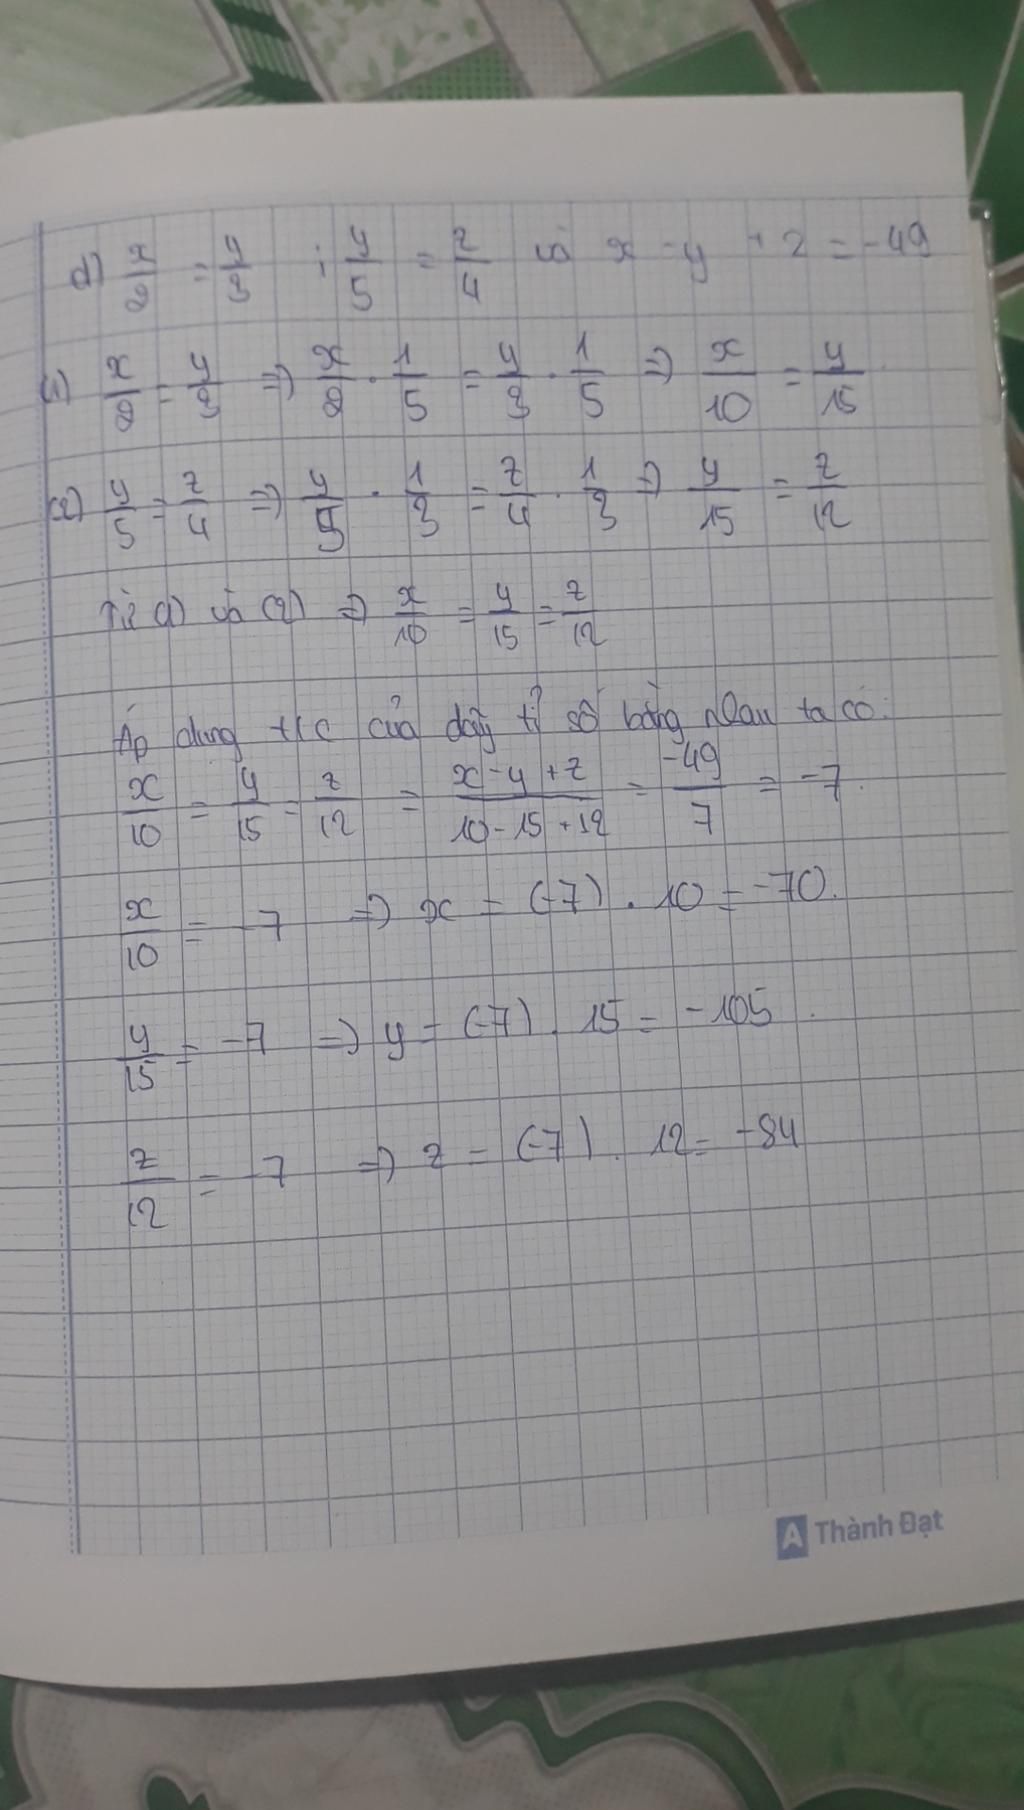 d) x/2 = y/3 ; y/5 = z/4 và x - y + z = -49
(1) x/2 = y/3 => x/2 . 1/5 = y/3 . 1/5 => x/10 = y/15
(2) y/5 = z/4 => y/5 . 1/3 = z/4 . 1/3 => y/15 = z/12
Từ (1) và (2) => x/10 = y/15 = z/12
Áp dụng t/c của dãy tỉ số bằng nhau ta có:
x/10 = y/15 = z/12 = x - y + z / 10 - 15 + 12 = -49/7 = -7.
x/10 = -7 => x = (-7) . 10 = -70.
y/15 = -7 => y = (-7) . 15 = -105.
z/12 = -7 => z = (-7) . 12 = -84
A Thành Đạt